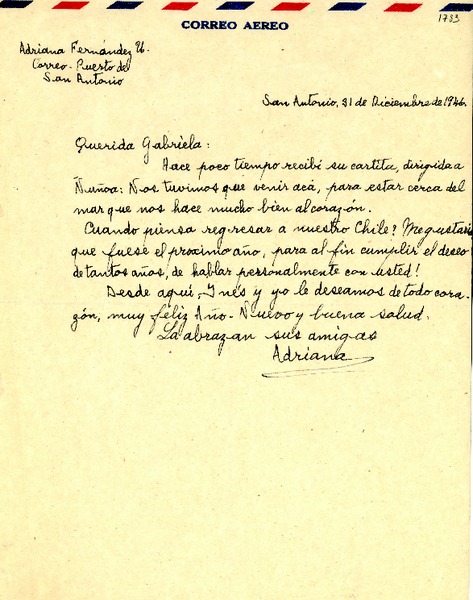 CORREO AEREO
1783
Adriana Fernández U.
Correo-Puerto del
San Antonio
San Antonio, 31 de Diciembre de 1946.
Querida Gabriela:
Hace poco tiempo recibí su cartita, dirigida a
Ñuñoa: Nos tuvimos que venir acá, para estar cerca del
mar que nos hace mucho bien al corazón.
Cuando piensa regresar a nuestro Chile? Me gustaría
que fuese el proximo año, para al fin cumplir el deseo
de tantos años, de hablar personalmente con usted!
Desde aquí, Inés y yo le deseamos de todo cora-
zón, muy feliz Año-Nuevo y buena salud.
La abrazan sus amigas
Adriana